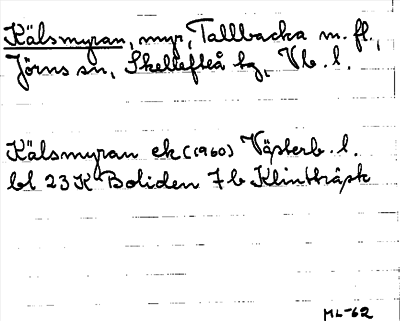 Kälsmyran, myr, Tallbacka m. fl.,
Jörns sn, Skellefteå kg, Vb. l.
Kälsmyran ek (1960) Västerb. l.
bl 23 K Boliden 7 b Klintträsk
ML-62